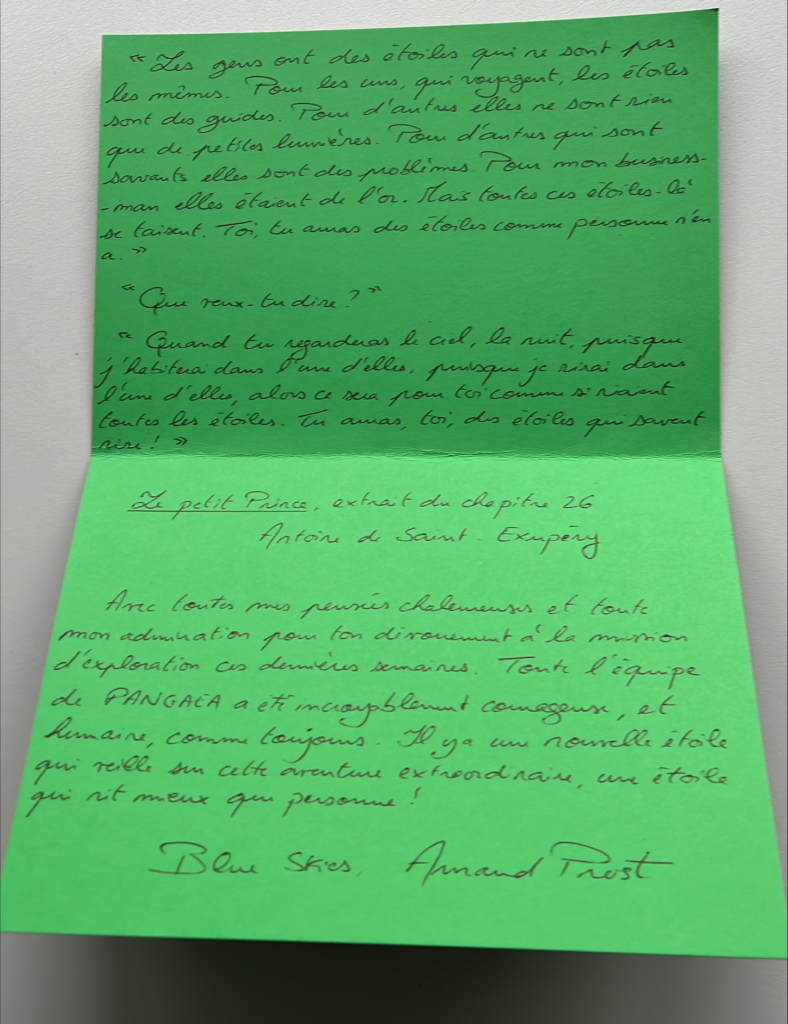 « Les gens ont des étoiles qui ne sont pas
les mêmes. Pour les uns, qui voyagent, les étoiles
sont des guides. Pour d'autres elles ne sont rien
que de petites lumières. Pour d'autres qui sont
savants elles sont des problèmes. Pour mon business-
-man elles étaient de l'or. Mais toutes ces étoiles-là
se taisent. Toi, tu auras des étoiles comme personne n'en
a. »
« Que veux-tu dire ? »
« Quand tu regarderas le ciel, la nuit, puisque
j'habiterai dans l'une d'elles, puisque je rirai dans
l'une d'elles, alors ce sera pour toi comme si riaient
toutes les étoiles. Tu auras, toi, des étoiles qui savent
rire ! »
Le petit Prince, extrait du chapitre 26
Antoine de Saint-Exupéry
Avec toutes mes pensées chaleureuses et toute
mon admiration pour ton dévouement à la mission
d'exploration ces dernières semaines. Toute l'équipe
de PANGAEA a été incroyablement courageuse, et
humaine, comme toujours. Il y a une nouvelle étoile
qui veille sur cette aventure extraordinaire, une étoile
qui rit mieux que personne !
Blue Skies, Arnaud Prost